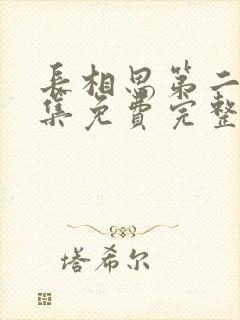 长相思第二
集免费完整
塔希尔